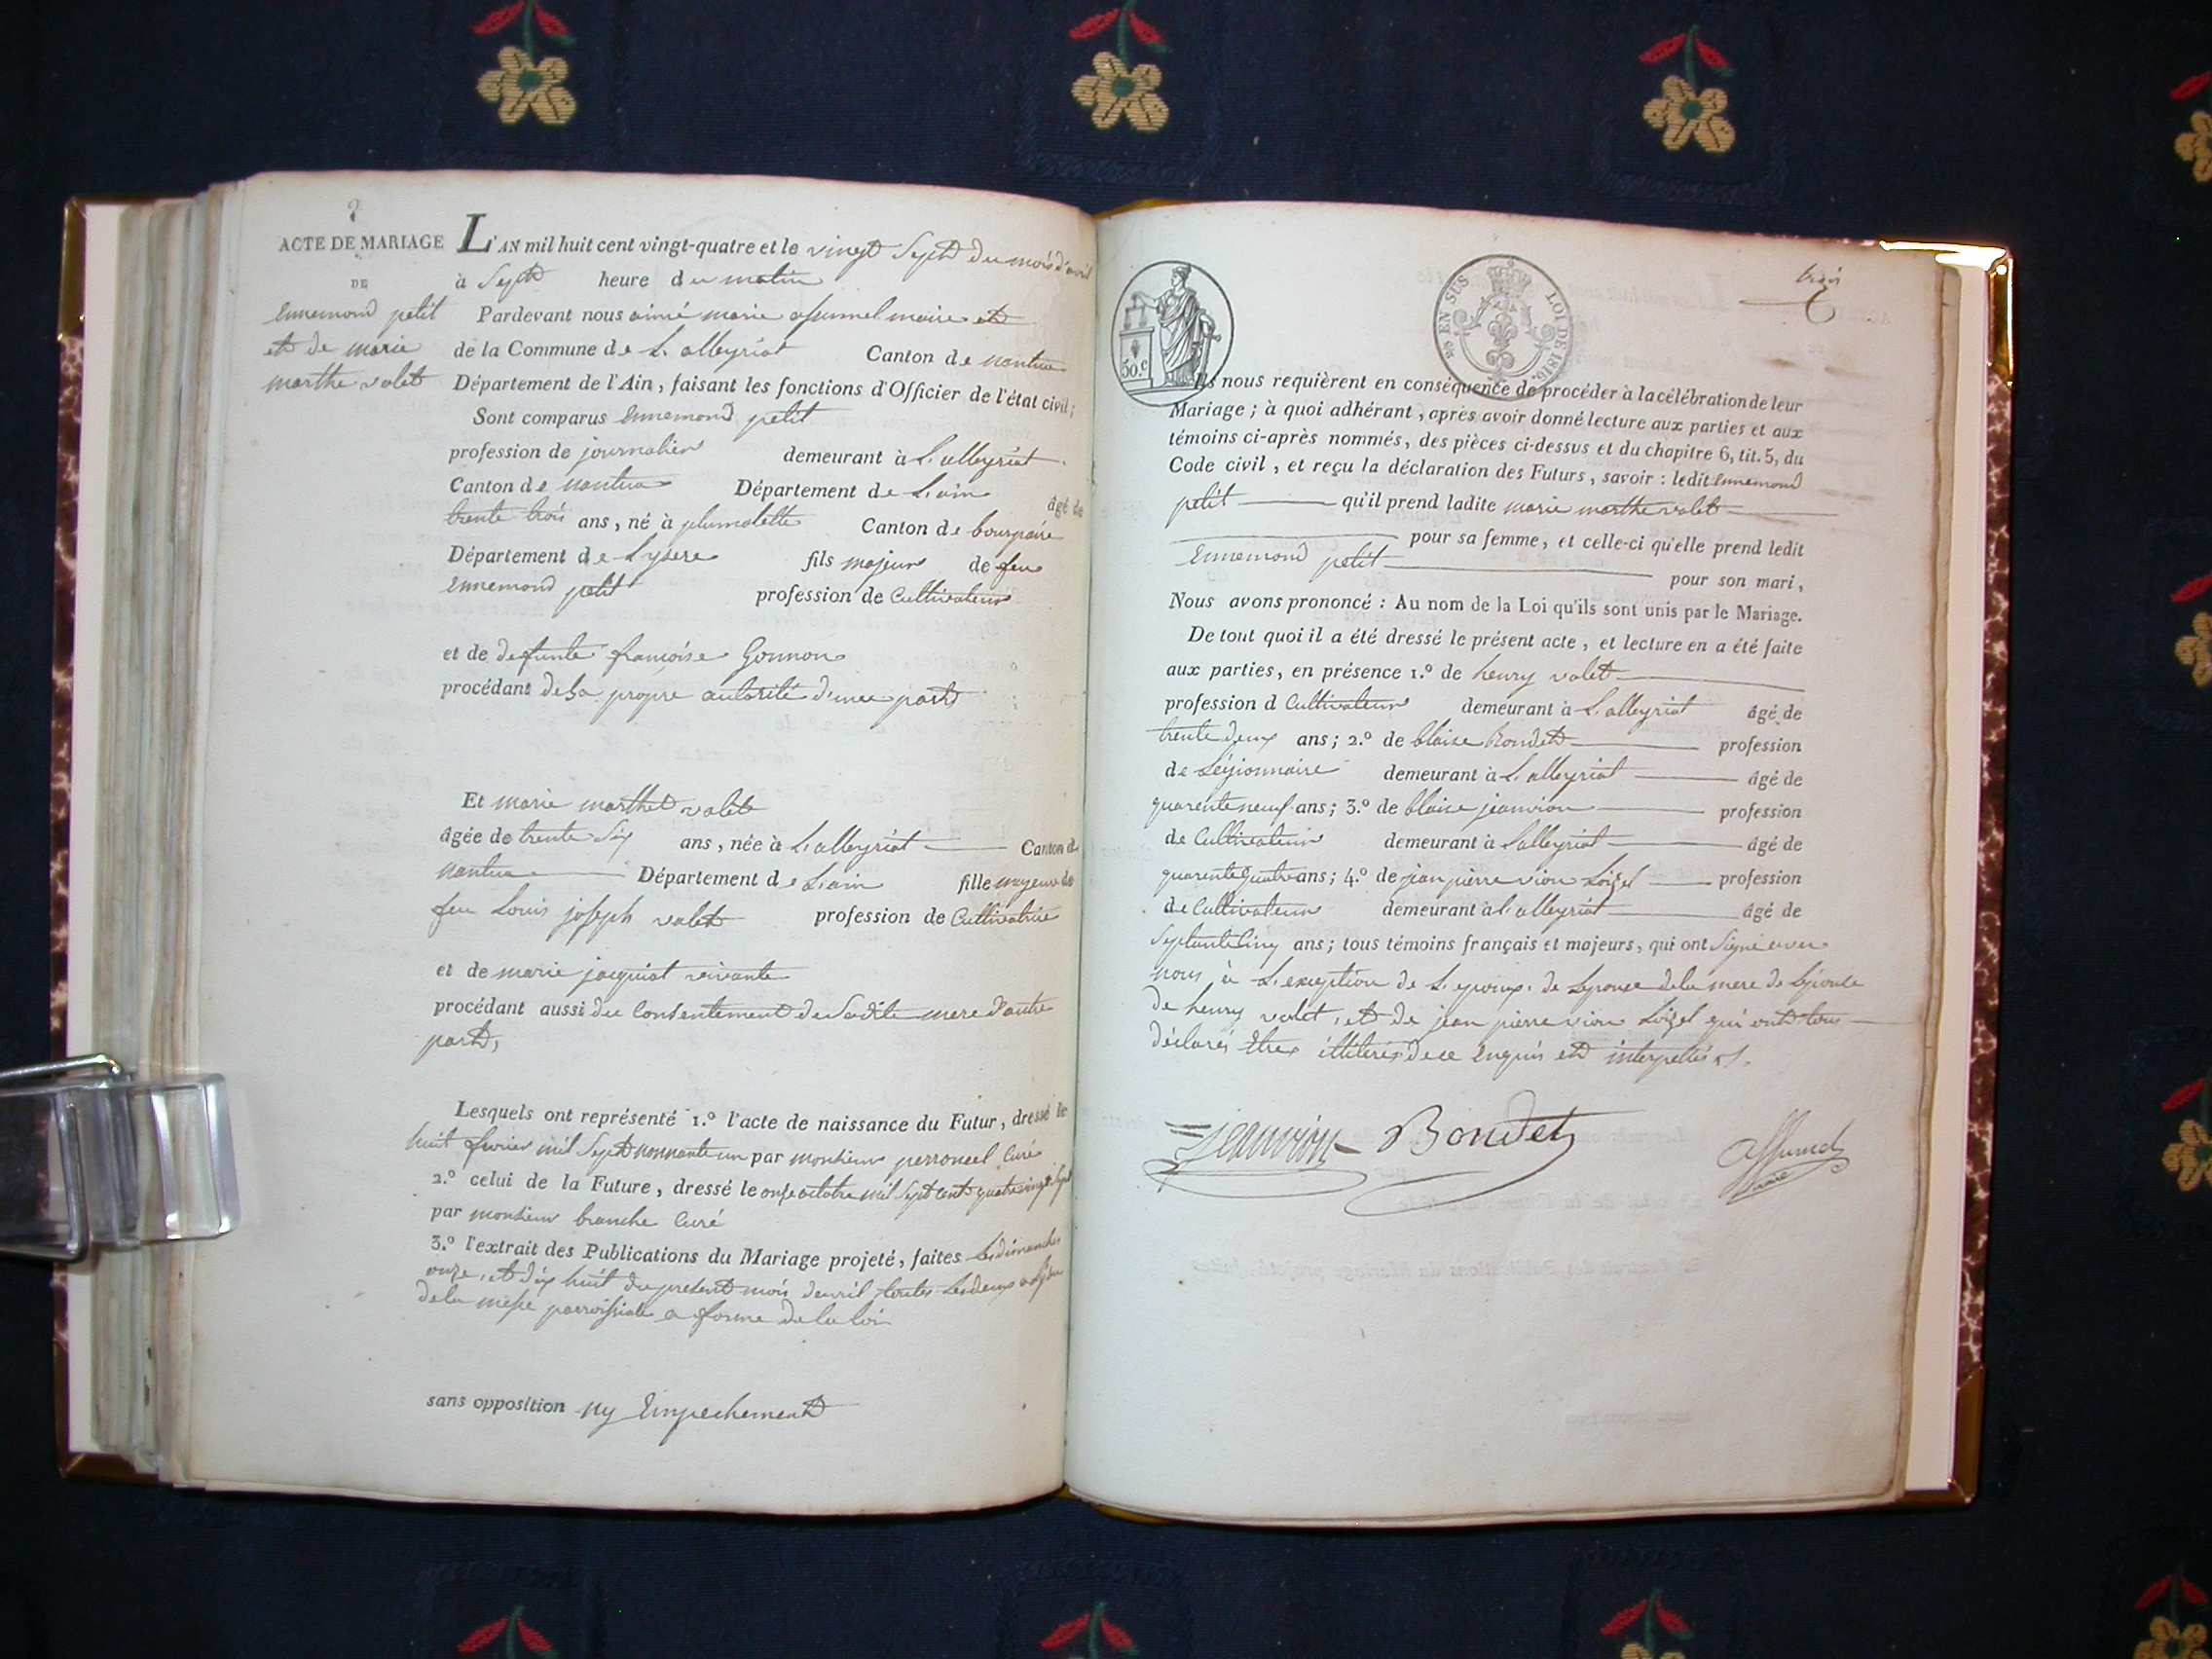 2
ACTE DE MARIAGE
DE
Ennemond petit
et de marie
marthe valet
L'AN mil huit cent vingt-quatre et le vingt Sept du mois d'avril
à Sept heure du matin
Pardevant nous aimé marie maire
de la Commune de L'alleyriat Canton de nantua
Département de l'Ain, faisant les fonctions d'Officier de l'état civil;
Sont comparus Ennemond petit
profession de journalier demeurant à L'alleyriat
Canton de nantua Département de L'ain âgé de
trente trois ans, né à Canton de
Département de L'ysere fils majeur de feu
Ennemond petit profession de Cultivateur
et de defunte françoise Gonnon
procédant de Sa propre autorité d'une part
Et marie marthe valet
âgée de trente Six ans, née à L'alleyriat Canton de
nantua Département de L'ain fille mageure de
feu Louis joseph valet profession de Cultivatrice
et de marie jacquiot vivante
procédant aussi du Consentement de Sadite mere d'autre
part,
Lesquels ont représenté 1.º l'acte de naissance du Futur, dressé le
huit fevrier mil Sept nonnante un par monsieur perroncel Curé
2.º celui de la Future, dressé le onze octobre mil Sept cent quatre vingt Sept
par monsieur branche Curé
3.º l'extrait des Publications du Mariage projeté, faites Les dimanches
onze, et dix huit du present mois d'avril toutes Les deux a
de la messe parroissiale a forme de la loi
sans opposition ny Empechement
trois
50.c
EN SUS
LOI DE 1816.
Ils nous requièrent en conséquence de procéder à la célébration de leur
Mariage; à quoi adhérant, après avoir donné lecture aux parties et aux
témoins ci-après nommés, des pièces ci-dessus et du chapitre 6, tit. 5, du
Code civil, et reçu la déclaration des Futurs, savoir : ledit Ennemond
petit qu'il prend ladite marie marthe valet
pour sa femme, et celle-ci qu'elle prend ledit
Ennemond petit pour son mari,
Nous avons prononcé : Au nom de la Loi qu'ils sont unis par le Mariage.
De tout quoi il a été dressé le présent acte, et lecture en a été faite
aux parties, en présence 1.º de henry valet
profession d Cultivateur demeurant à L'alleyriat âgé de
trente deux ans; 2.º de blaise Bondet profession
de Légionnaire demeurant à L'alleyriat âgé de
quarente neuf ans; 3.º de blaise jeanvion profession
de Cultivateur demeurant à Lalleyriat âgé de
quarente quatre ans; 4.º de jean pierre vion Loizel profession
de Cultivateur demeurant à L'alleyriat âgé de
Septante Cinq ans; tous témoins français et majeurs, qui ont Signé avec
nous à L'exception de L'epoux, de Lepouse de la mere de Lépouse
de henry valet, et de jean pierre vion Loizel qui ont tous
déclarés Etres illiterés de ce Enquis et interpellés
Jeanvion Bondet
maire